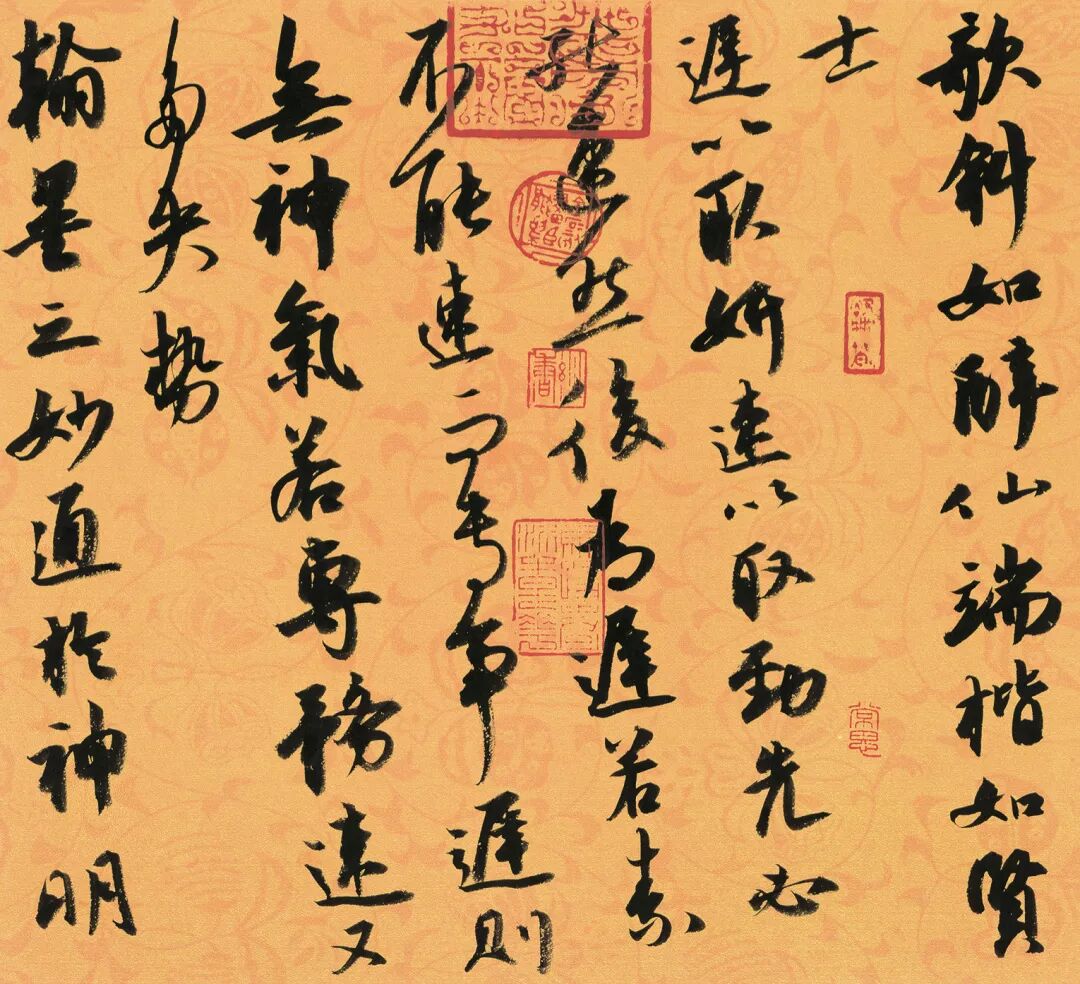 欹斜如醉仙端楷如賢
士
遲以取妍速以取勁先必
能速然後為遲若素
不能速而專事遲則
無神氣若專務速又
多失勢
翰墨之妙通於神明